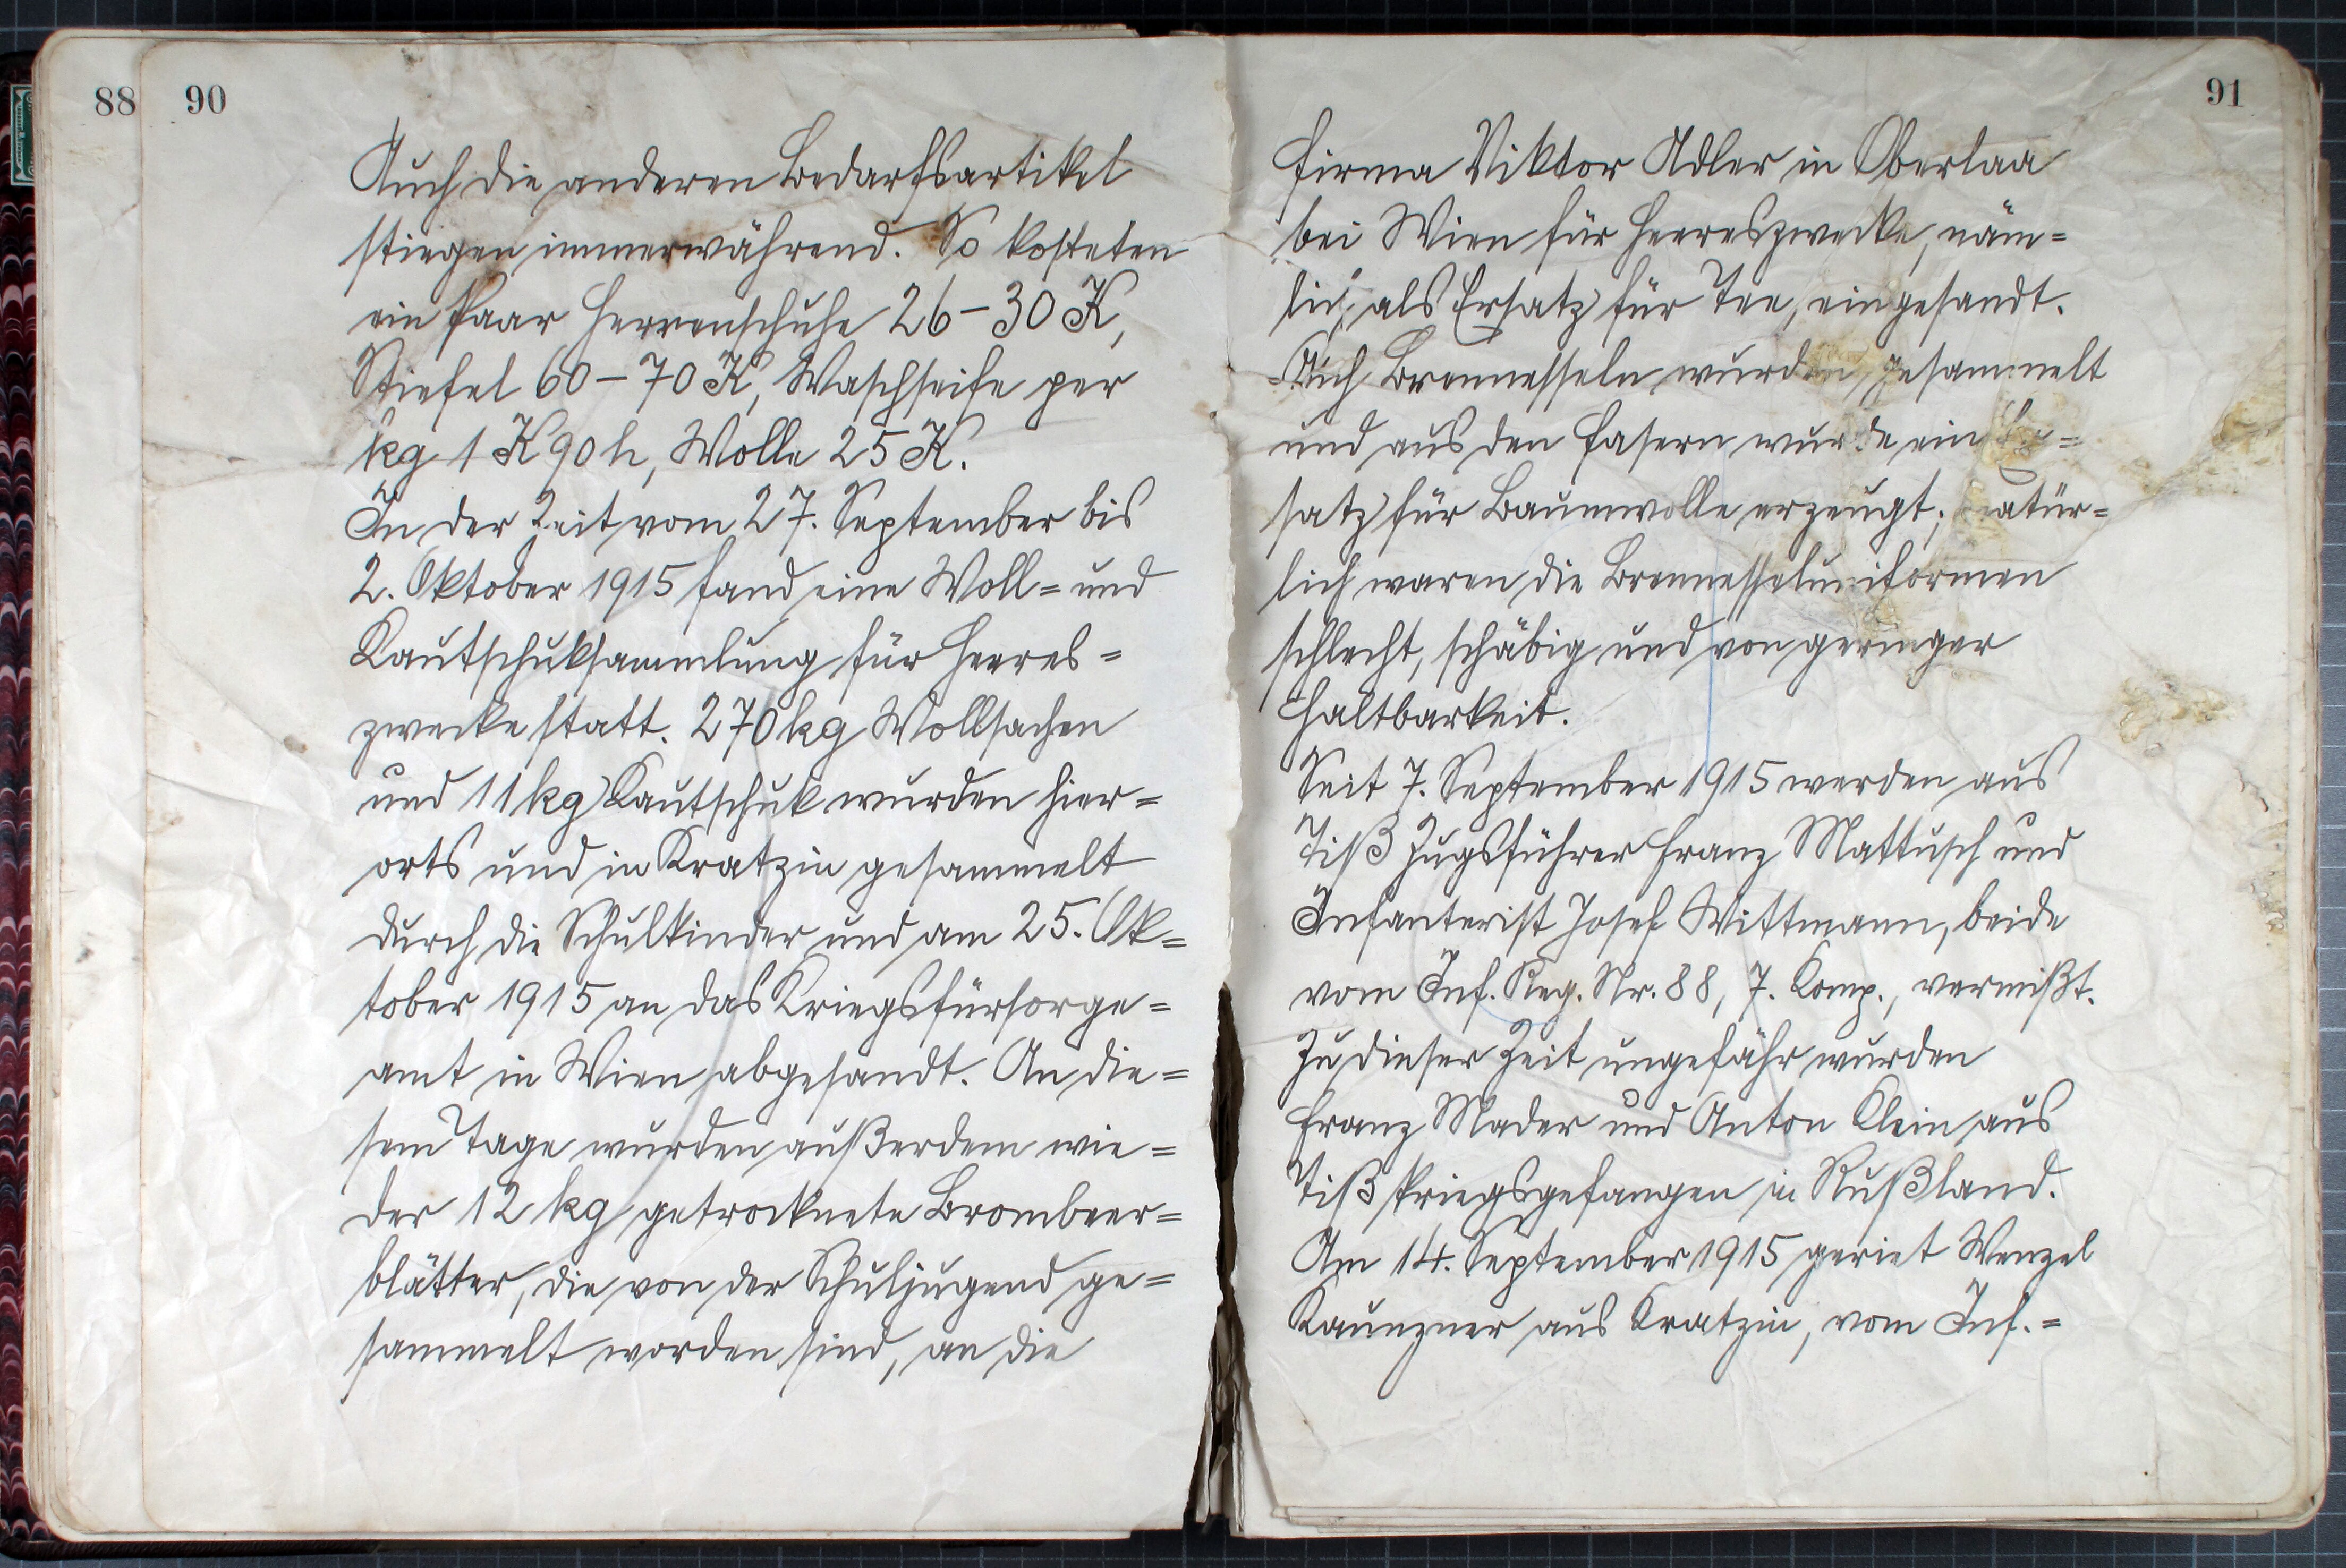 88
90
Auch die anderen Bedarfsartikel
stiegen immerwährend. So kosteten
ein Paar Herrenschuhe 26–30 K,
Stiefel 60–70 K, Waschseife per
kg 1 K 90 h, Wolle 25 K.
In der Zeit vom 27. September bis
2. Oktober 1915 fand eine Woll= und
Kautschuksammlung für Heeres=
zwecke statt. 270 kg Wollsachen
und 11 kg Kautschuk wurden hier=
orts und in Kratzin gesammelt
durch die Schulkinder und am 25. Ok=
tober 1915 an das Kriegsfürsorge=
amt in Wien abgesandt. An die=
sem Tage wurden außerdem wie=
der 12 kg getrocknete Brombeer=
blätter, die von der Schuljugend ge=
sammelt worden sind, an die
91
Firma Viktor Adler in Oberlaa
bei Wien für Heereszwecke, näm=
lich als Ersatz für Tee, eingesandt.
Auch Brennesseln wurden gesammelt
und aus den Fasern wurde ein Er=
satz für Baumwolle erzeugt; natür=
lich waren die Brennesseluniformen
schlecht, schäbig und von geringer
Haltbarkeit.
Seit 7. September 1915 werden aus
Tiß Zugsführer Franz Mattusch und
Infanterist Josef Wittmann, beide
vom Inf. Reg. Nr. 88, 7. Komp., vermißt.
Zu dieser Zeit ungefähr wurden
Franz Mader und Anton Klein aus
Tiß kriegsgefangen in Rußland.
Am 14. September 1915 geriet Wenzel
Kaunzner aus Kratzin, vom Inf.=